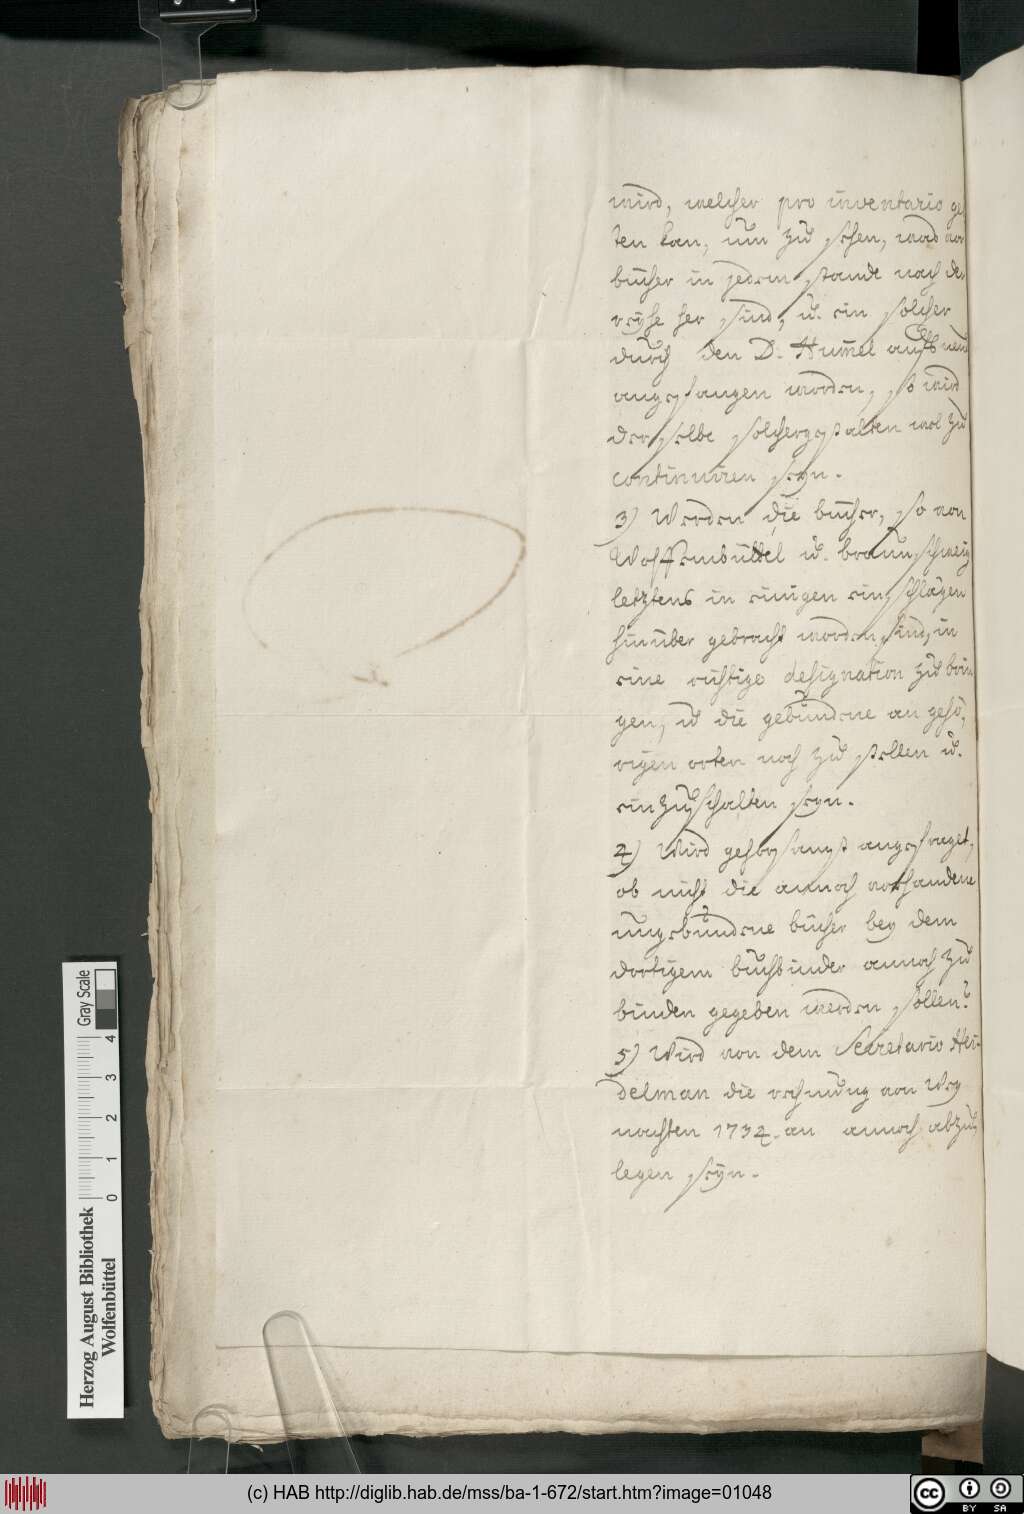 wird, welcher pro inventario gel
ten kan, um zu sehen, was vor
bücher in jedem stande nach der
reihe her sind, u. ein solcher
durch den D. Hum̄el aufs neue
angefangen worden, so wird
derselbe solchergestalten wol zu
continuiren seyn.
3) Werden die bücher, so von
Wolffenbüttel u. braunschweig
letztens in einigen einschlägen
hinüber gebracht worden sind, in
eine richtige designation zu brin
gen, u. die gebundene an gehö,
rigen orten noch zu stellen u.
einzuschalten seyn.
4) Wird gehorsamst angefraget,
ob nicht die annoch vorhandene
ungebundene bücher bey dem
dortigem buchbinder annoch zu
binden gegeben werden sollen?
5) Wird von dem Secretario
delman die rechnung von Wey
nachten 1734. an annoch abzu
legen seyn.
Herzog August Bibliothek
Wolfenbüttel
0 1 2 3 4
Gray Scale
(c) HAB http://diglib.hab.de/mss/ba-1-672/start.htm?image=01048
cc BY SA